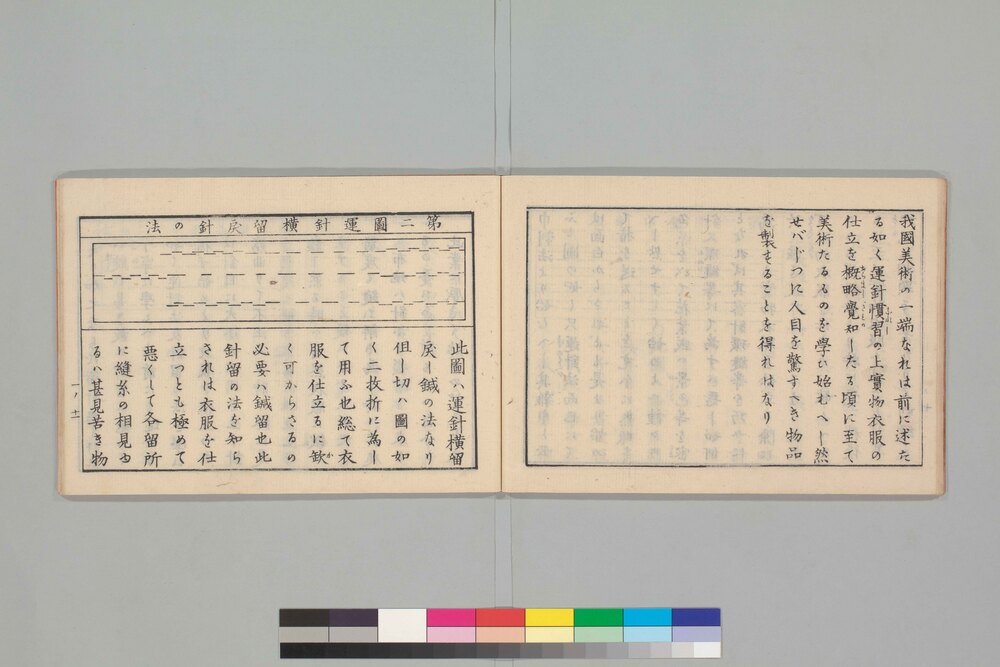 我國美術の一端なれは前に述た
る如く運針慣習の上實物衣服の
仕立を概略覺知したる頃に至て
美術たるものを学び始むへし然
せバどつに人目を驚すへき物品
を製することを得れはなり
第二圖運針横留戻針の法
此圖ハ運針横留
戻し鍼の法なり
但し切ハ圖の如
く二枚折に為し
て用ふ也総て衣
服を仕立るに欽
く可からさるの
必要ハ鍼留也此
針留の法を知ら
されは衣服を仕
立つとも極めて
惡くして各留所
に縫糸の相見ゆ
るハ甚見苦き物
一ノ十一